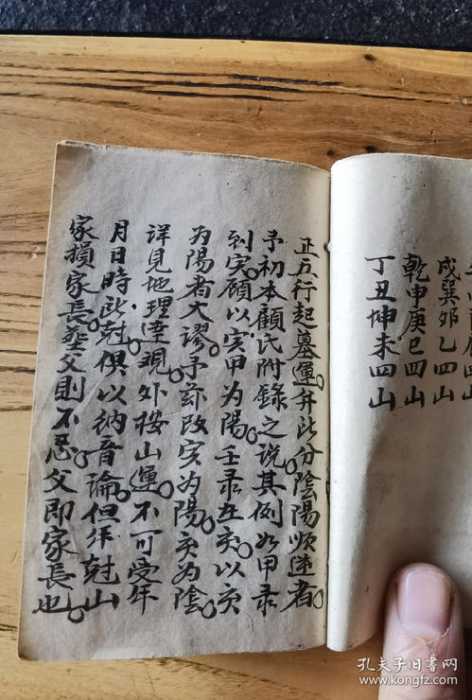 戌巽夘乙四山
乾申庚巳四山
丁丑坤未四山
正五行起墓運。并此分陰陽順逆者。
予初本顧氏附錄之说其例如甲录
到寅顧以寅甲为陽。壬录在亥。以亥
为陽者大謬。予茲改寅为陽。亥为陰。
詳見地理逹观外按山運。不可受年
月日時此尅俱以納音論。但年尅山
家損家長。塟父則不忌父即家長也。
孔夫子旧书网
kongfz.com